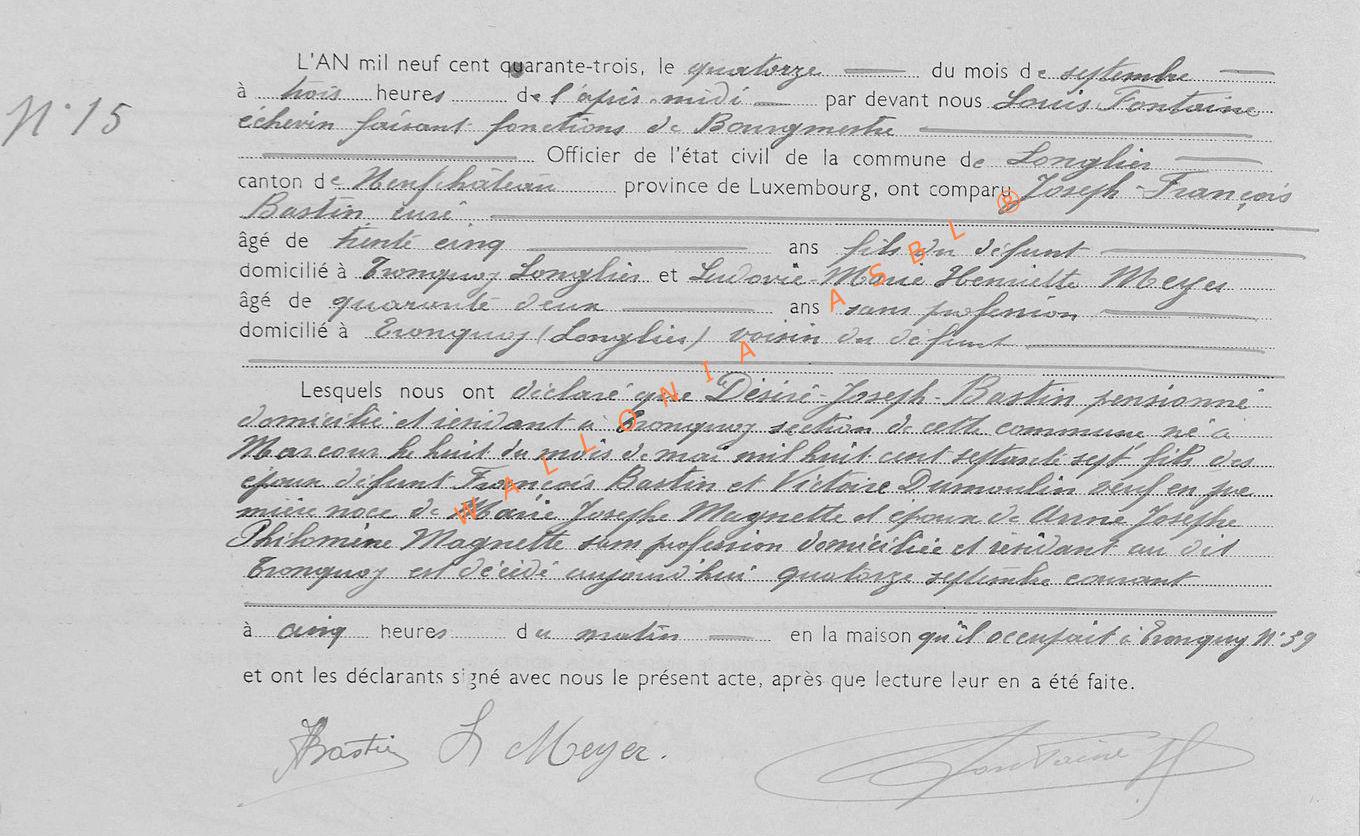 L'AN mil neuf cent quarante-trois, le quatorze du mois de septembre
N° 15
à trois heures de l'après-midi par devant nous Louis Fontaine
échevin faisant fonctions de Bourgmestre
Officier de l'état civil de la commune de Longlier
canton de Neufchâteau province de Luxembourg, ont comparu Joseph-François
Bastin curé
âgé de trente cinq ans fils du défunt
domicilié à Tronquoy Longlier et Ludovie-Marie Henriette Meyer
âgé de quarante deux ans sans profession
domicilié à Tronquoy (Longlier) voisin du défunt
Lesquels nous ont déclaré que Désiré-Joseph-Bastin pensionné
domicilié et résidant à Tronquoy section de cette commune né à
Marcour le huit du mois de mai mil huit cent septante sept fils des
époux défunt François Bastin et Victoire Dumoulin veuf en pre
mière noce de Marie Josephe Magnette et époux de Anne Josephe
Philomène Magnette sans profession domiciliée et résidant au dit
Tronquoy est décédé aujourd'hui quatorze septembre courant
à cinq heures du matin en la maison qu'il occupait à Tronquoy N° 39
et ont les déclarants signé avec nous le présent acte, après que lecture leur en a été faite.
JBastin L Meyer. Fontaine
WALLONIA ASBL ®